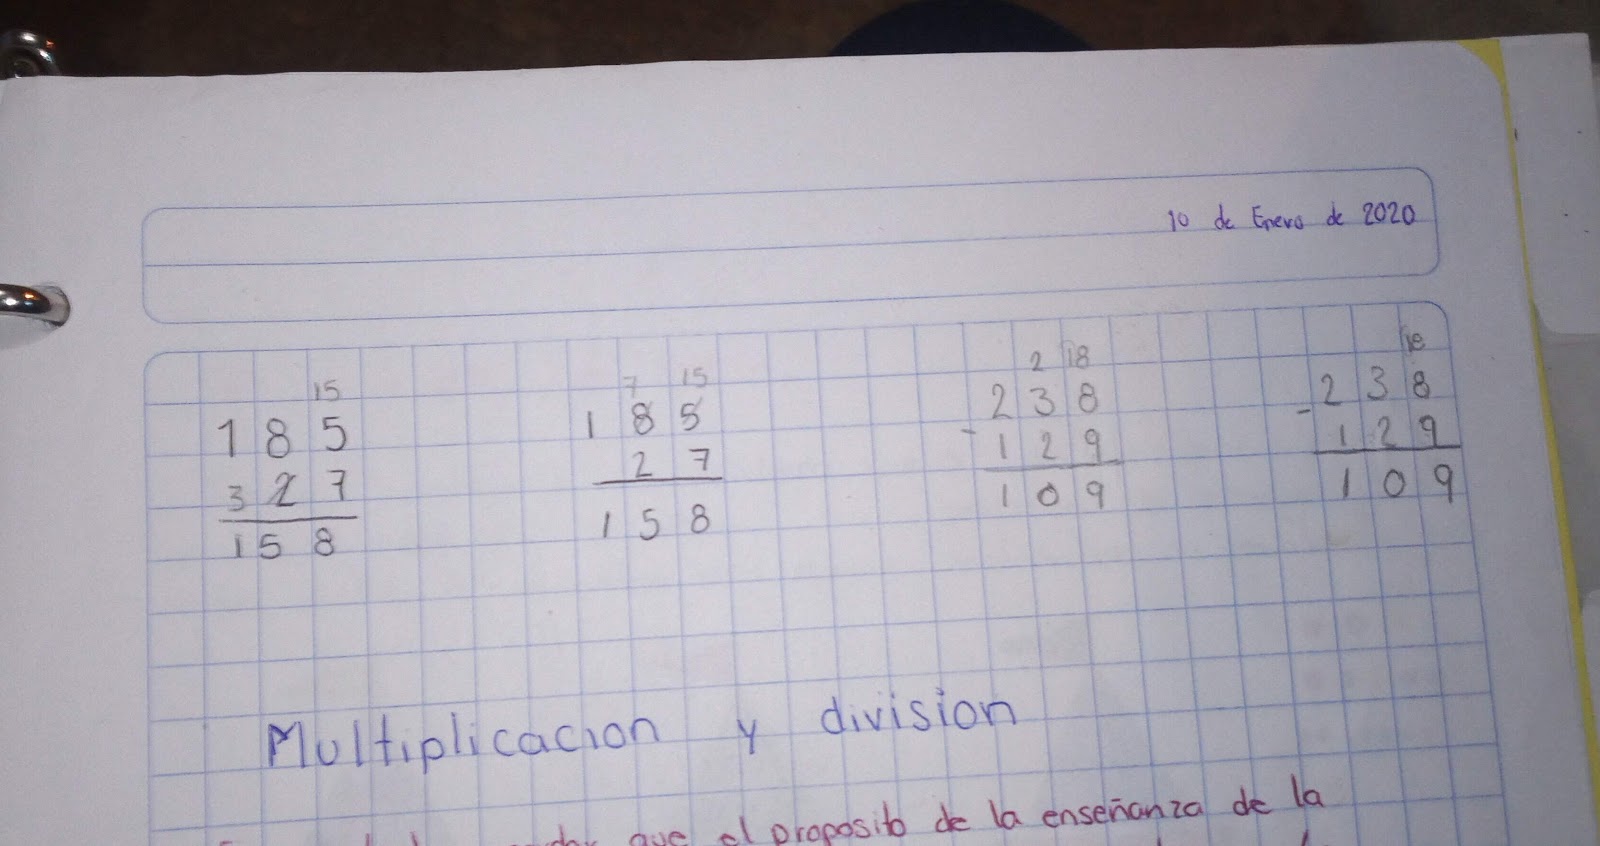 10 de Enero de 2020
15 7 15 2 18 18
185 185 238 - 238
327 27 - 129 129
158 158 109 109
Multiplicacion y division
que el proposito de la enseñanza de la